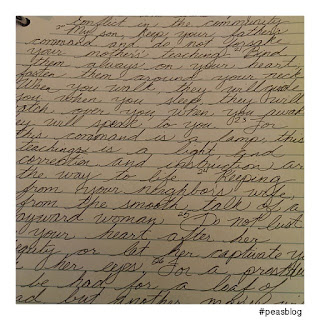 conflict in the community
20 My son, keep your father's
command and do not forsake
your mother's teaching. 21 Bind
them always on your heart,
fasten them around your neck
When you walk, they will guide
you when you sleep, they will
watch over you when you awake
ey will speak to you. 23 For
this command is a lamp, this
teaching is a light, and
correction and instruction are
the way to life 24 Keeping
from your neighbor's wife,
from the smooth talk of a
ayward woman 25 Do not lust
your heart after her
eauty or let her captivate y
her eyes, 26 For a prostitu
be had for a loaf of
ad but another man's wi
#peasblog